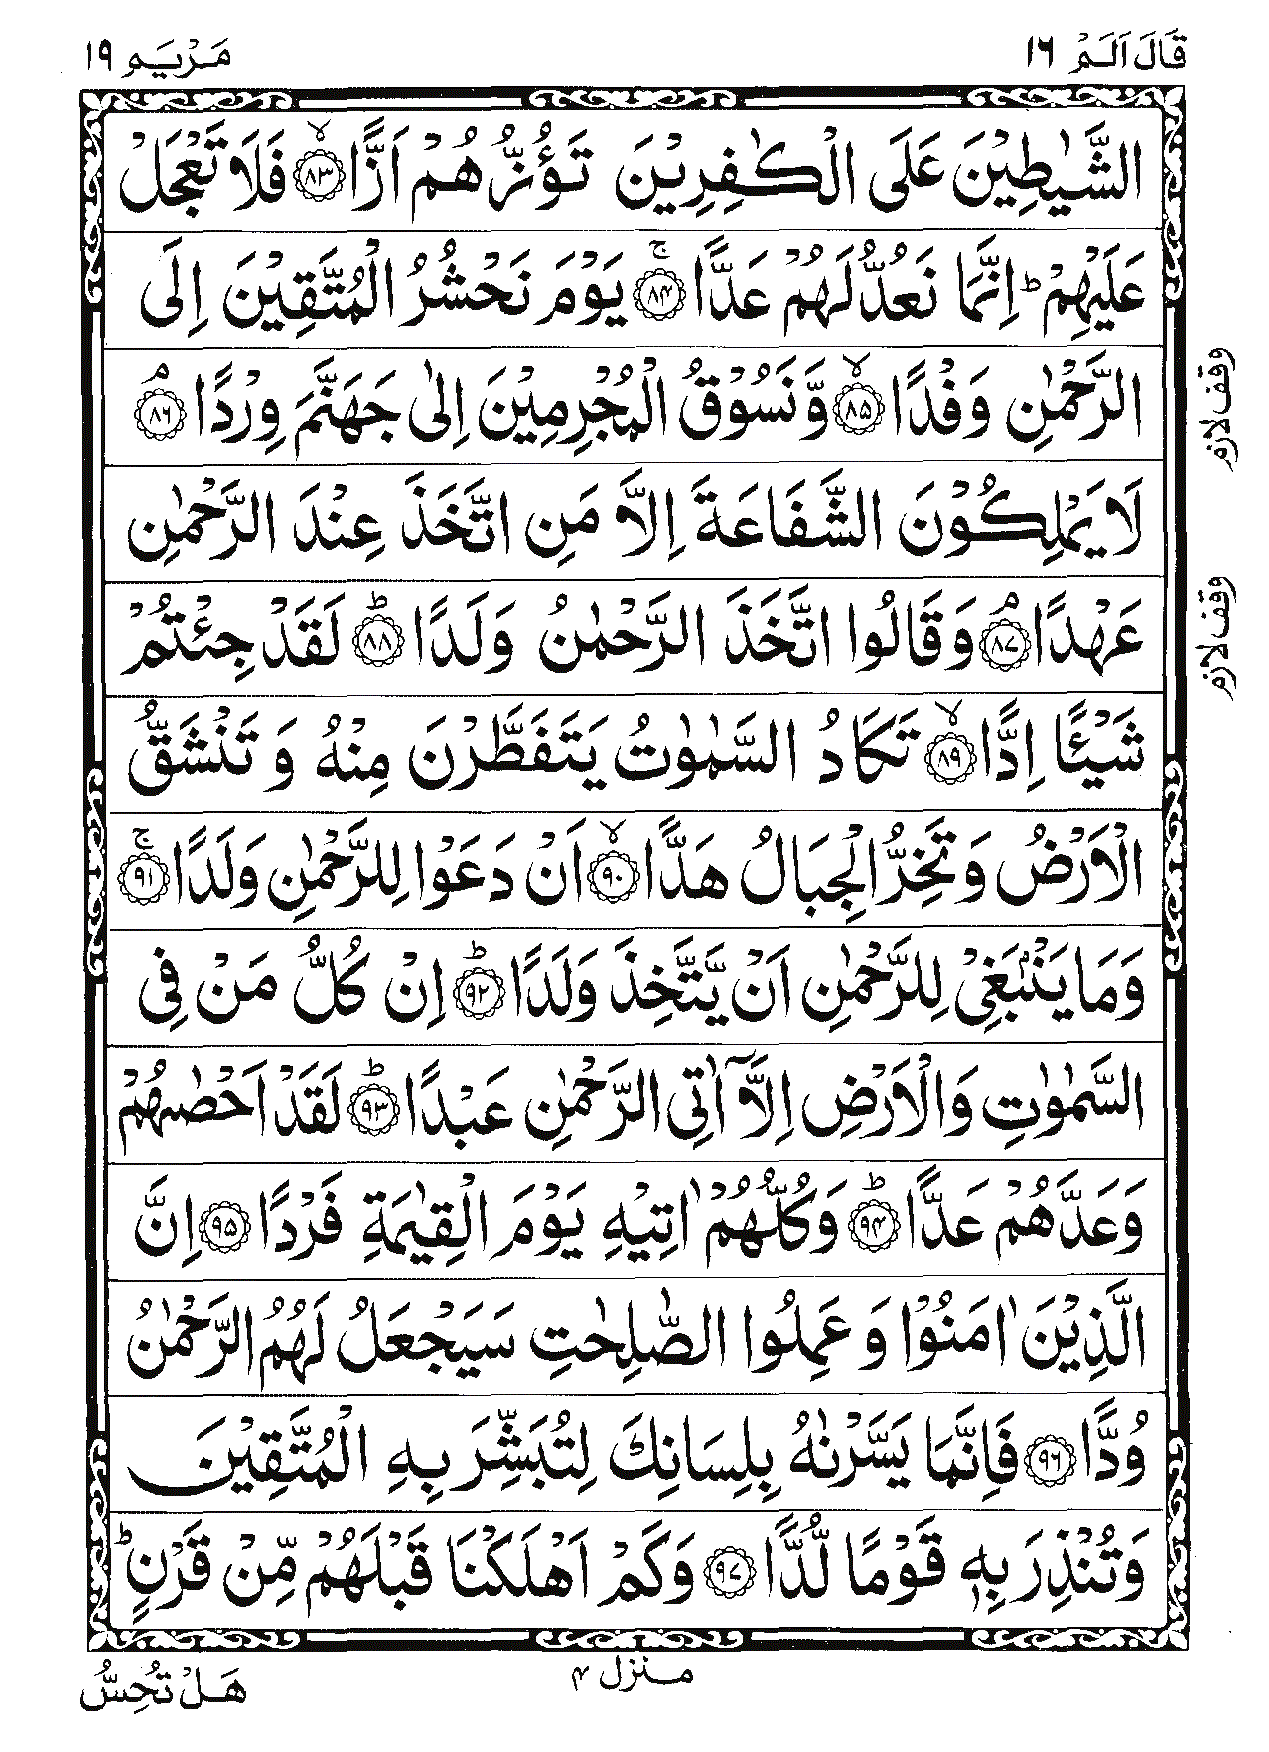 قَالَ اَلَمْ ١٦
مَرْيَم ١٩
الشَّيٰطِيْنَ عَلَى الْكٰفِرِيْنَ تَؤُزُّهُمْ اَزًّا ۙ﴿۸۳﴾ فَلَا تَعْجَلْ
عَلَيْهِمْ ؕ اِنَّمَا نَعُدُّ لَهُمْ عَدًّا ۚ﴿۸۴﴾ يَوْمَ نَحْشُرُ الْمُتَّقِيْنَ اِلَى
الرَّحْمٰنِ وَفْدًا ۙ﴿۸۵﴾ وَّنَسُوْقُ الْمُجْرِمِيْنَ اِلٰى جَهَنَّمَ وِرْدًا ۘ﴿۸۶﴾
وقف لازم
لَا يَمْلِكُوْنَ الشَّفَاعَةَ اِلَّا مَنِ اتَّخَذَ عِنْدَ الرَّحْمٰنِ
عَهْدًا ۘ﴿۸۷﴾ وَقَالُوا اتَّخَذَ الرَّحْمٰنُ وَلَدًا ؕ﴿۸۸﴾ لَقَدْ جِئْتُمْ
وقف لازم
شَيْـًٔا اِدًّا ۙ﴿۸۹﴾ تَكَادُ السَّمٰوٰتُ يَتَفَطَّرْنَ مِنْهُ وَ تَنْشَقُّ
الْاَرْضُ وَتَخِرُّ الْجِبَالُ هَدًّا ۙ﴿۹۰﴾ اَنْ دَعَوْا لِلرَّحْمٰنِ وَلَدًا ۚ﴿۹۱﴾
وَمَا يَنْۢبَغِيْ لِلرَّحْمٰنِ اَنْ يَّتَّخِذَ وَلَدًا ؕ﴿۹۲﴾ اِنْ كُلُّ مَنْ فِى
السَّمٰوٰتِ وَالْاَرْضِ اِلَّاۤ اٰتِى الرَّحْمٰنِ عَبْدًا ؕ﴿۹۳﴾ لَقَدْ اَحْصٰىهُمْ
وَعَدَّهُمْ عَدًّا ؕ﴿۹۴﴾ وَكُلُّهُمْ اٰتِيْهِ يَوْمَ الْقِيٰمَةِ فَرْدًا ﴿۹۵﴾ اِنَّ
الَّذِيْنَ اٰمَنُوْا وَ عَمِلُوا الصّٰلِحٰتِ سَيَجْعَلُ لَهُمُ الرَّحْمٰنُ
وُدًّا ﴿۹۶﴾ فَاِنَّمَا يَسَّرْنٰهُ بِلِسَانِكَ لِتُبَشِّرَ بِهِ الْمُتَّقِيْنَ
وَتُنْذِرَ بِهٖ قَوْمًا لُّدًّا ﴿۹۷﴾ وَكَمْ اَهْلَكْنَا قَبْلَهُمْ مِّنْ قَرْنٍ ؕ
منزل ۴
هَلْ تُحِسُّ